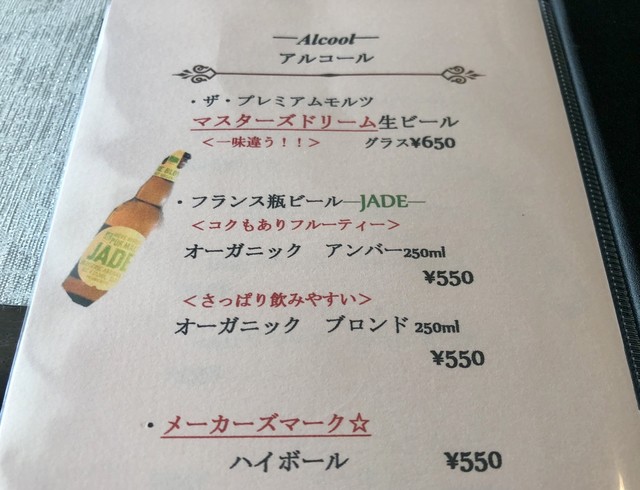 —Alcool—
アルコール
・ザ・プレミアムモルツ
マスターズドリーム生ビール
＜一味違う！！＞ グラス¥650
・フランス瓶ビール—JADE—
＜コクもありフルーティー＞
オーガニック アンバー250ml
¥550
＜さっぱり飲みやすい＞
オーガニック ブロンド 250ml
¥550
・メーカーズマーク☆
ハイボール ¥550
JADE